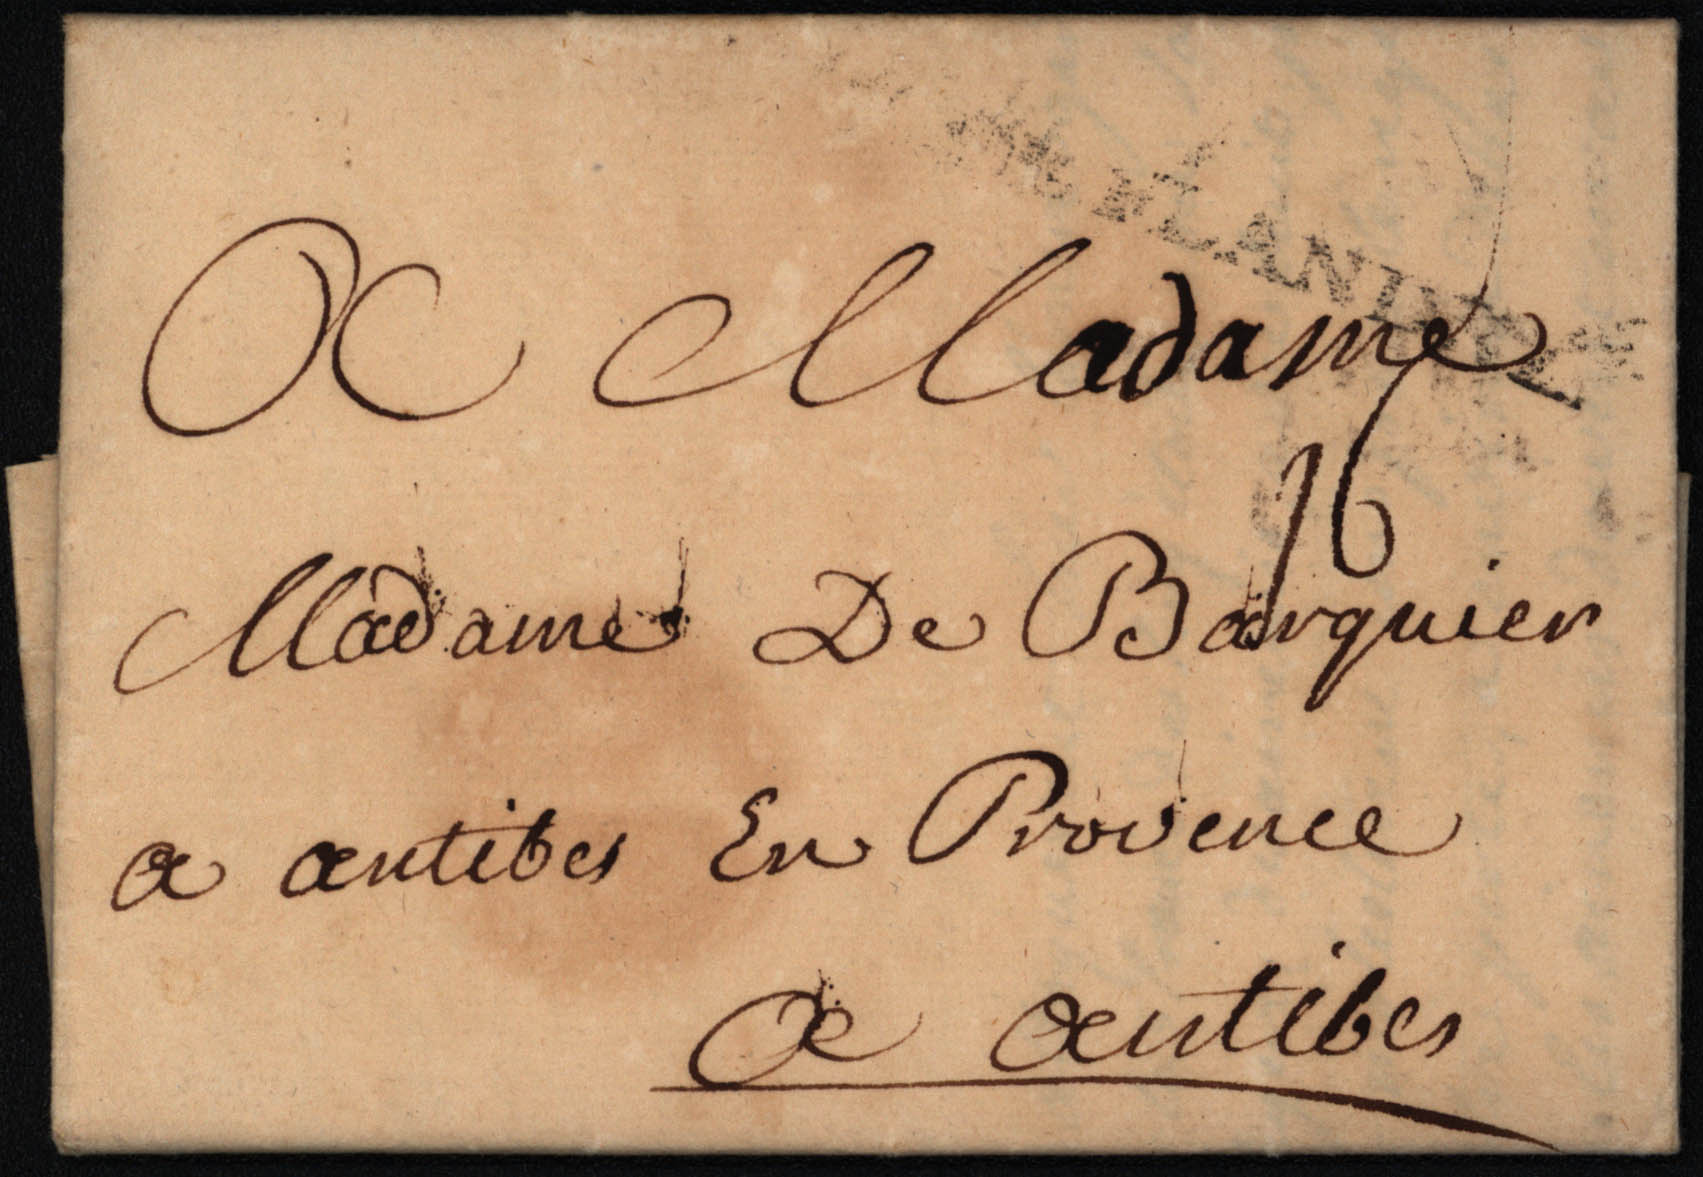 A Madame
16
Madame De Barquier
a antibes En Provence
a antibes